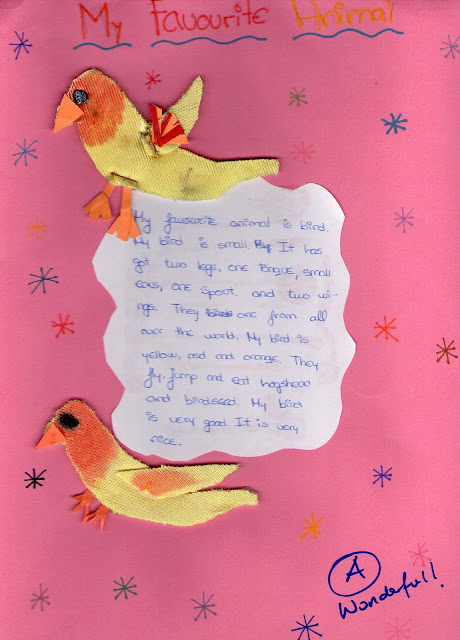 My Favourite Animal
My favourite animal is bird.
My bird is small. It has
got two legs, one tongue, small
ears, one spout. and two wi-
ngs. They are from all
over the world. My bird is
yellow, red and orange. They
fly, jump and eat hogshead
and birdseed. My bird
is very good. It is very
nice.
A
Wonderful!!